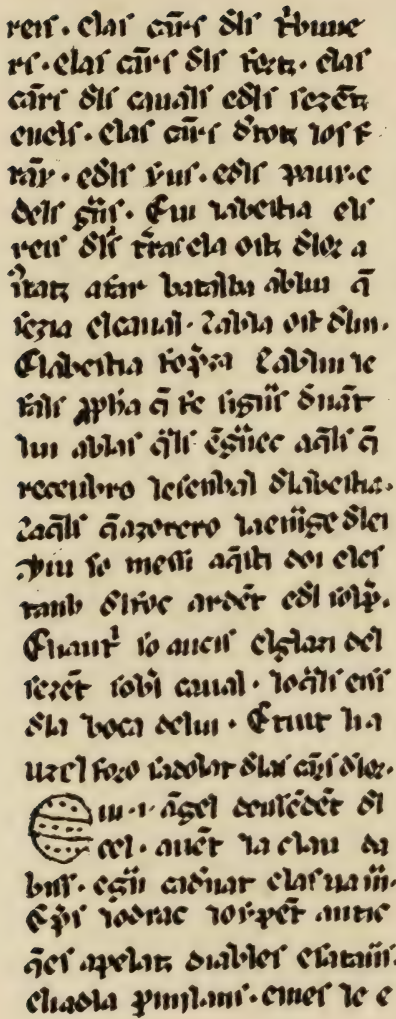 reis · elas cārs d̄ls t̄bune
rs · elas cārs d̄ls fortz · elas
cārs d̄ls cauals ed̄ls sezētz
en els · elas cārs d̄totz los f
rās · ed̄ls s̄us · ed̄ls paux · e
dels grās · E ui la bestia els
reis d̄ las t̄ras ela ostz d̄lor a
iustatz afar batalha ab lui q̄
sezia el caual · 7 ab la ost d̄lui ·
E la bestia fo p̄sa 7 ab lui le
fals p̄pha q̄ fe signes d̄uāt
lui ab las q̄ls ēganec aq̄ls q̄
receubro le senhal d̄la bestia ·
7 aq̄ls q̄ azorero la emage d̄lei
viu so messi aq̄sti doi el es
tanh d̄l foc ardēt ed̄l solp̄ ·
E li autr̄ so aucis el glazi del
sezēt sobrel caual · lo q̄ls eis
d̄la boca de lui · E tuit li a
uzel foro sadolat d̄las cārs d̄lor ·
E ui · i · āgel deissēdēt d̄l
cel · auēt la clau da
bis · e grā cadena e la sua mā ·
E p̄s lo drac lo serpēt antic
q̄ es apelatz diables e satanas ·
e liadla p̄ mil ans · e mes le e